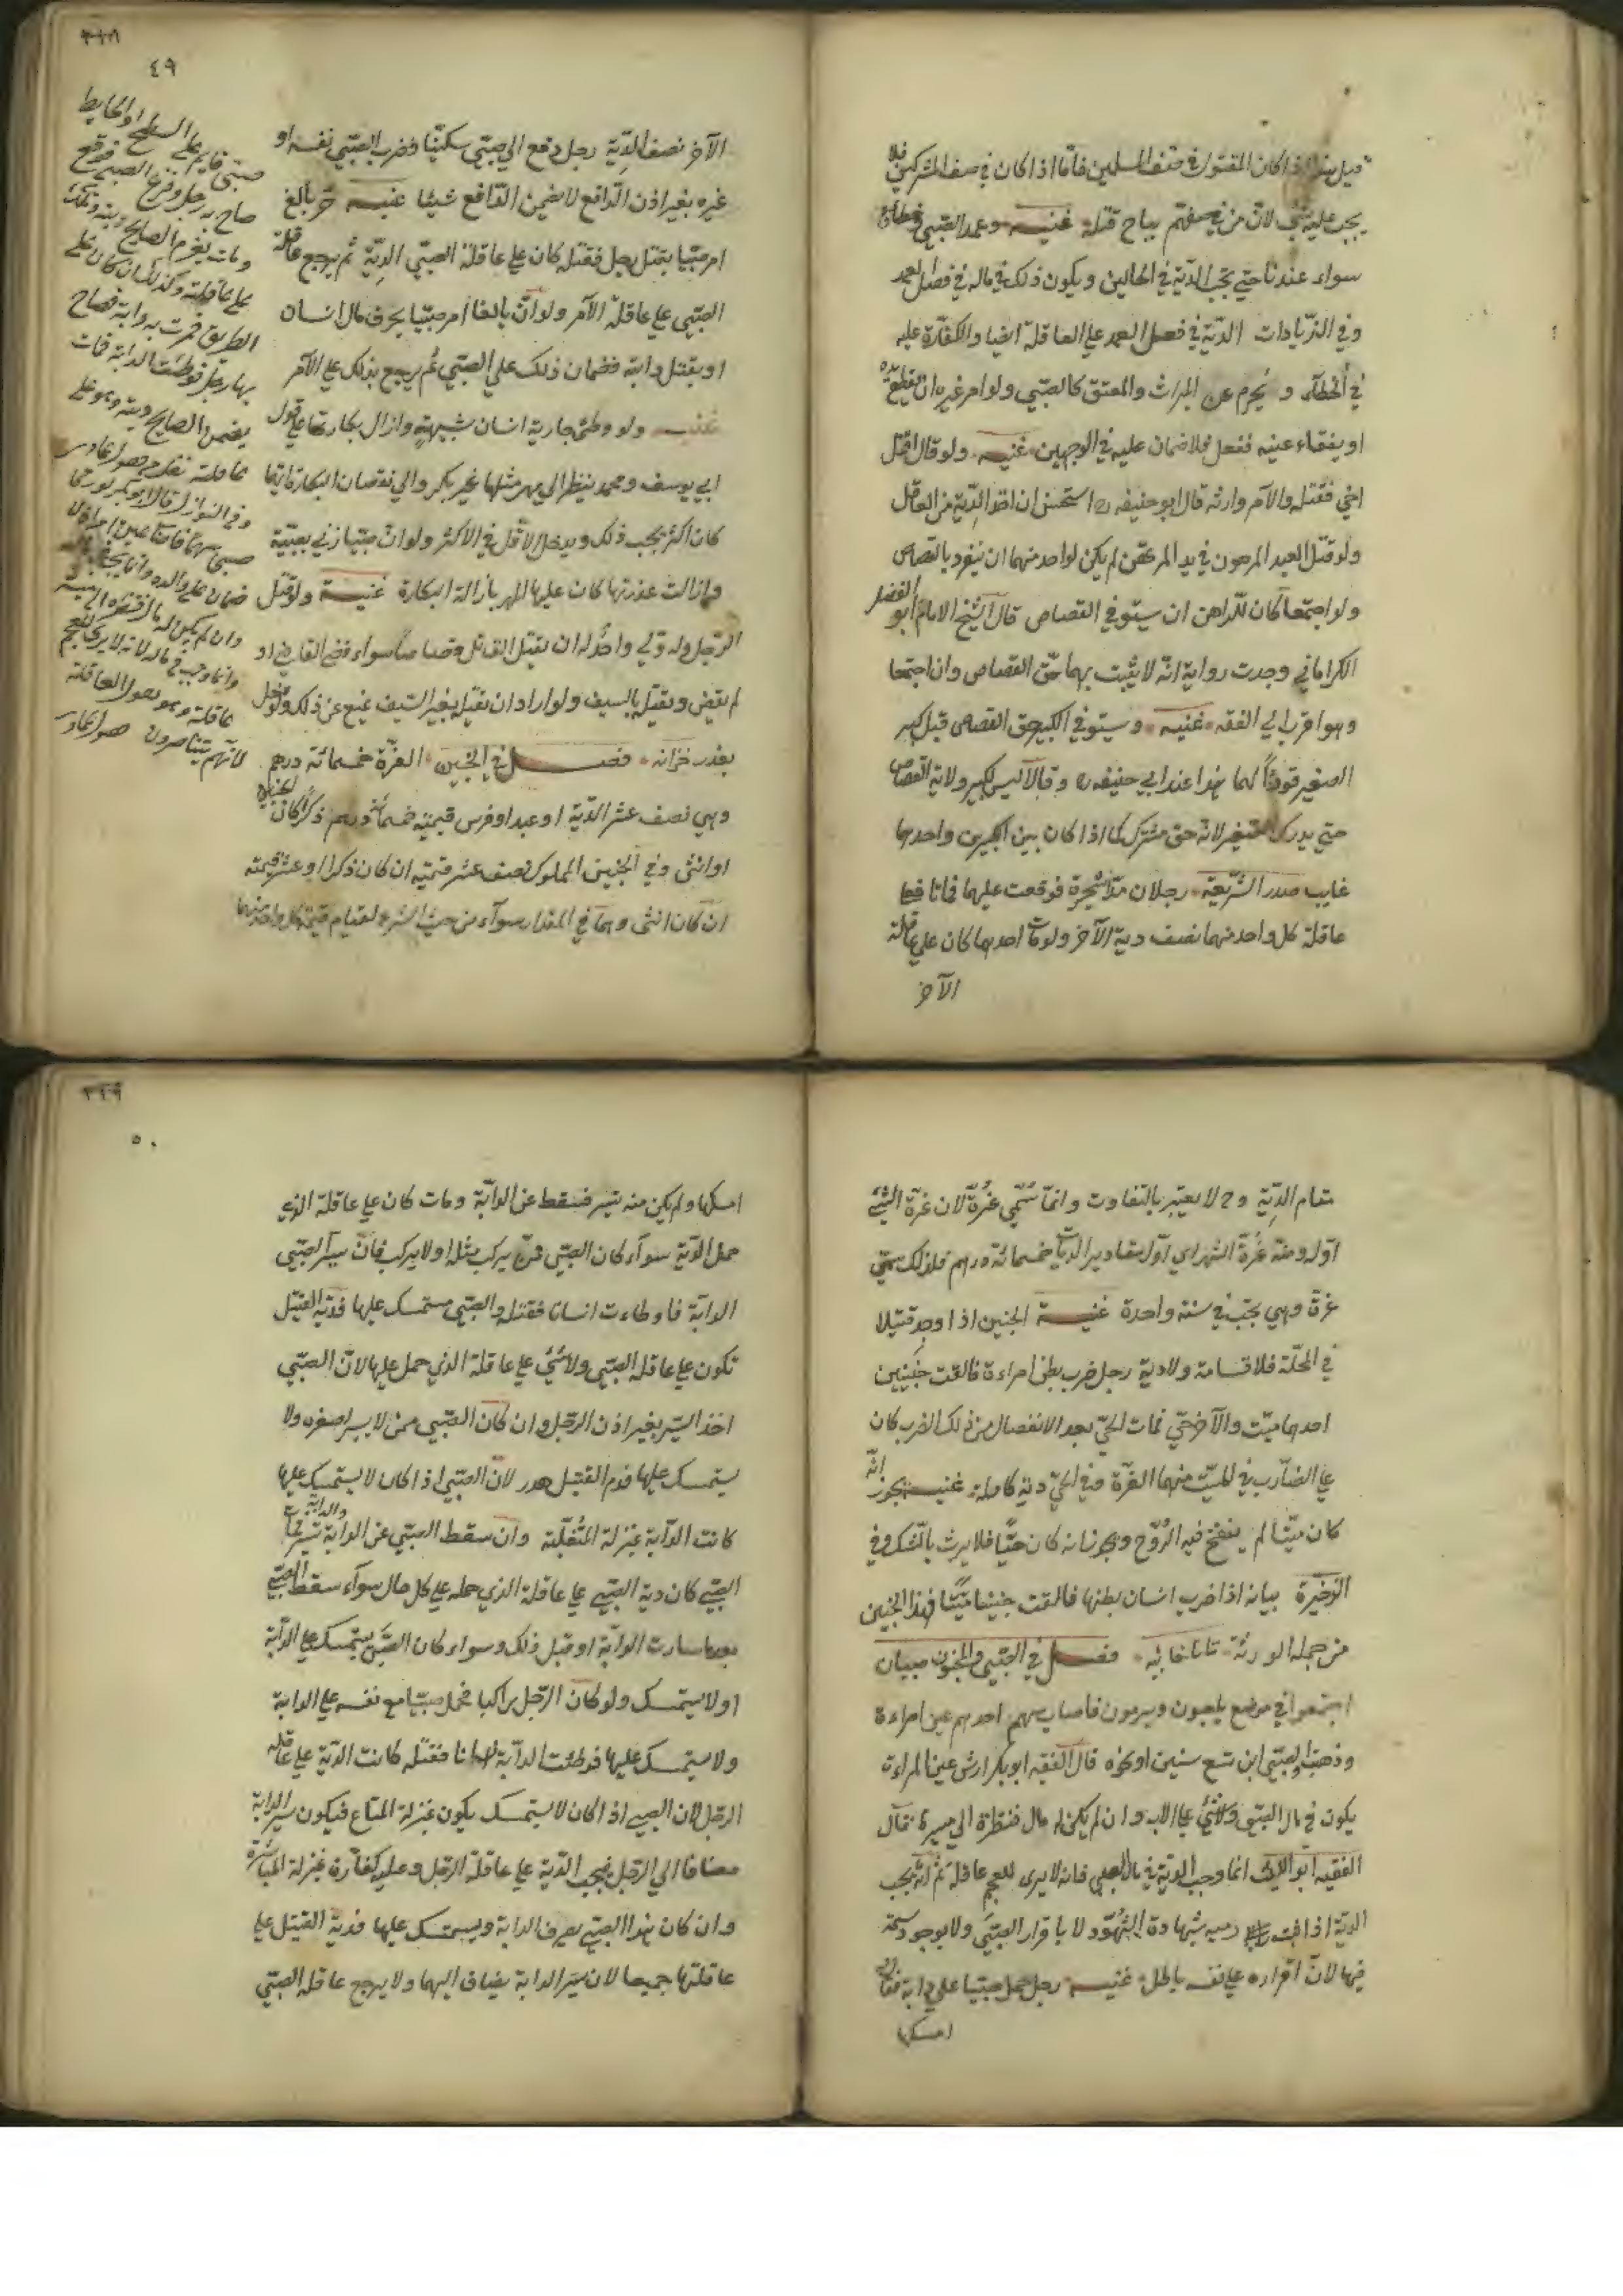 قيل هذا اذا كان المقتول في صف المسلمين فاما اذا كان في صف المشركين فلا
يجب عليه شئ لان من في صفهم يباح قتله غنيه وعمد الصبي وخطاؤه
سواء عندنا حتي تجب الدية في الحالين ويكون ذلك في ماله في فصل العمد
وفي الزيادات الدية في فصل العمد علي العاقلة ايضا والكفارة عليه
في الخطأ و يحرم عن الميراث والمعتق كالصبي ولو امر غيره ان يقطع يده
او يفقاء عينه ففعل فلا ضمان عليه في الوجهين غنيه ولو قال اقتل
اخي فقتله والآمر وارثه قال ابو حنيفه استحسن ان اخذ الدية من القاتل
ولو قتل العبد المرهون في يد المرتهن لم يكن لواحد منهما ان ينفرد بالقصاص
ولو اجتمعا كان للراهن ان يستوفي القصاص قال الشيخ الامام ابو الفضل
الكراماني وجدت رواية انه لا يثبت بهما حق القصاص وان اجتمعا
وهو اقرب الي الفقه غنيه ويستوفي الكبير حق القصاص قبل كبر
الصغير قودا لهما هذا عند ابي حنيفه وقالا ليس للكبير ولاية القصاص
حتي يدرك الصغير لانه حق مشترك كما اذا كان بين الكبيرين واحدهما
غايب صدر الشريعة رجلان مدا شجرة فوقعت عليهما فماتا فعلي
عاقلة كل واحد منهما نصف دية الآخر ولو مات احدهما كان علي عاقلة
الآخر
٤٩
الآخر نصف الدية رجل دفع الي صبي سكينا فضرب الصبي نفسه او
غيره بغير اذن الدافع لا يضمن الدافع شيئا غنيه حر بالغ
امر صبيا بقتل رجل فقتله كان علي عاقلة الصبي الدية ثم يرجع عاقلة
الصبي علي عاقلة الآمر ولو ان بالغا امر صبيا بحرق مال انسان
او بقتل دابة فضمان ذلك علي الصبي ثم يرجع بذلك علي الآمر
غنيه ولو وطئ جارية انسان بشبهة وازال بكارتها علي قول
ابي يوسف ومحمد ينظر الي مهر مثلها غير بكر والي نقصان البكارة ايهما
كان اكثر يجب ذلك ويدخل الاقل في الاكثر ولو ان صبيا زني بصبية
وازالت عذرتها كان عليه المهر بازالة البكارة غنيه ولو قتل
الرجل وله ولي واحد له ان يقتل القاتل قصاصا سواء قضي القاضي او
لم يقض ويقتل بالسيف ولو اراد ان يقتل بغير السيف منع عن ذلك
يعذر خزانه فصل في الجنين الغرة خمسمائة درهم
وهي نصف عشر الدية او عبد او فرس قيمته خمسمائة درهم ذكرا كان الجنين
او انثى وفي الجنين المملوك نصف عشر قيمته ان كان ذكرا او عشر قيمته
ان كان انثى وهما في المقدار سواء من حيث الشرع لقيام قيمة كل واحد منهما
صبي قايم علي السطح او الحايط
صاح به رجل ففزع الصبي فوقع
ومات يغرم الصايح ديته وتكون
علي عاقلته وكذلك ان كان علي
الطريق فمرت به دابة فصاح
بها رجل فوطئت الدابة فمات
يضمن الصايح ديته وهو علي
عاقلته
وفي النوازل قال ابو بكر لو رمي
صبي سهما فاصاب عين امراة لا
ضمان علي والده وانما يجب
وان لم يكن له مال فنظرة الي ميسرة
وانما وجب في ماله لانه لا يري للعجم
عاقلة وهو يقول العاقلة
لانهم يتناصرون
مقام الدية و لا يعتبر بالتفاوت وانما سمي غرة لان غرة الشئ
اوله ومنه غرة الشهر اي اول مقادير الديات خمسمائة درهم فلذلك سمي
غرة وهي تجب في سنة واحدة غنيه الجنين اذا وجد قتيلا
في المحلة فلا قسامة ولا دية رجل ضرب بطن امراءة فالقت جنينين
احدهما ميت والآخر حي فمات الحي بعد الانفصال من ذلك الضرب كان
علي الضارب في الميت منهما الغرة وفي الحي دية كاملة غنيه يجوز انه
كان ميتا لم ينفخ فيه الروح ويجوز انه كان حيا فلا يرث بالشك وفي
الذخيرة بيانه اذا ضرب انسان بطنها فالقت جنينا ميتا فهذا الجنين
من جملة الورثة تاتارخانيه فصل في الصبي والمجنون صبيان
اجتمعوا في موضع يلعبون ويرمون فاصاب سهم احدهم عين امراءة
وذهبت والصبي ابن تسع سنين او نحوه قال الفقيه ابو بكر ارش عين المراءة
يكون في مال الصبي ولا شئ علي الاب وان لم يكن له مال فنظرة الي ميسرة قال
الفقيه ابو الليث انما وجب الدية في مال الصبي فانه لا يرى للعجم عاقلة ثم انه يجب
الدية اذا ثبت رميه بشهادة الشهود لا باقرار الصبي ولا بوجود سهمه
فيها لان اقراره علي نفسه باطل غنيه رجل حمل صبيا علي دابة فقال له
امسكها
٥٠
امسكها ولم يكن منه تسير فسقط عن الدابة ومات كان علي عاقلة الذي
حمل الدية سواء كان الصبي ممن يركب مثله او لا يركب فان سير الصبي
الدابة فاوطاءت انسانا فقتله والصبي مستمسك عليها فدية القتيل
تكون علي عاقلة الصبي ولا شئ علي عاقلة الذي حمل عليها لان الصبي
اخذ السير بغير اذن الرجل وان كان الصبي ممن لا يسير لصغره ولا
يستمسك عليها فدم القتيل هدر لان الصبي اذا كان لا يستمسك عليها
كانت الدابة بمنزلة المنفلتة وان سقط الصبي عن الدابة والدابة تسير فمات
الصبي كان دية الصبي علي عاقلة الذي حمله علي كل حال سواء سقط الصبي
بعدما سارت الدابة او قبل ذلك وسواء كان الصبي يستمسك علي الدابة
او لا يستمسك ولو كان الرجل راكبا فحمل صبيا مع نفسه علي الدابة
ولا يستمسك عليها فوطئت الدابة انسانا فقتله كانت الدية علي عاقلة
الرجل لان الصبي اذا كان لا يستمسك يكون بمنزلة المتاع فيكون سير الدابة
مضافا الي الرجل فيجب الدية علي عاقلة الرجل وعليه كفارة بمنزلة المباشرة
وان كان هذا الصبي يصرف الدابة ويستمسك عليها فدية القتيل علي
عاقلتهما جميعا لان سير الدابة يضاف اليهما ولا يرجع عاقلة الصبي